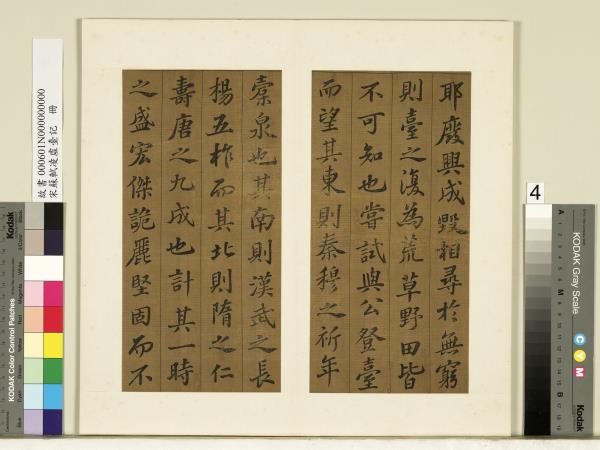 耶廢興成毀相尋於無窮
則臺之復為荒草野田皆
不可知也嘗試與公登臺
而望其東則秦穆之祈年
橐泉也其南則漢武之長
楊五柞而其北則隋之仁
壽唐之九成也計其一時
之盛宏傑詭麗堅固而不
故書 000601N000000000
宋蘇軾凌虛臺記 冊
4
KODAK Gray Scale
C Y M
Kodak
A
M
B
Kodak
KODAK Color Control Patches
Black
White
Magenta
Red
Yellow
Green
Cyan
Blue